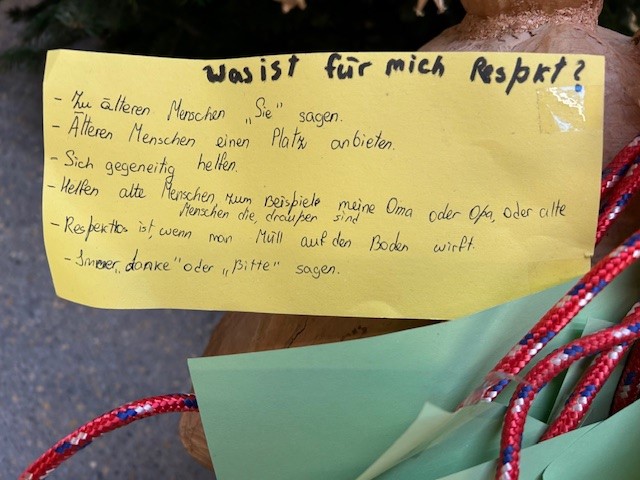 Was ist für mich Respkt?
- Zu älteren Menschen „Sie" sagen.
- Älteren Menschen einen Platz anbieten.
- Sich gegeneitig helfen.
- Helfen alte Menschen, zum Beispiele meine Oma oder Opa, oder alte
Menschen die, draußen sind
- Respektlos ist, wenn man Müll auf den Boden wirft.
- Immer „danke" oder „Bitte" sagen.